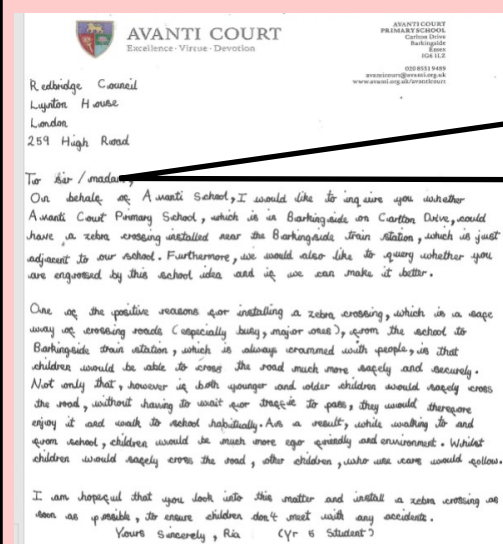 AVANTI COURT
Excellence · Virtue · Devotion
AVANTI COURT
PRIMARY SCHOOL
Carlton Drive
Barkingside
Essex
IG6 1LZ
020 8551 9489
avanticourt@avanti.org.uk
www.avanti.org.uk/avanticourt
Redbridge Council
Lynton House
London
259 High Road
To Sir / madam,
On behalf of Avanti School, I would like to inquire you whether
Avanti Court Primary School, which is in Barkingside on Carlton Drive, could
have a zebra crossing installed near the Barkingside train station, which is just
adjacent to our school. Furthermore, we would also like to query whether you
are engrossed by this school idea and if we can make it better.
One of the positive reasons for installing a zebra crossing, which is a safe
way of crossing roads (especially busy, major ones), from the school to
Barkingside train station, which is always crammed with people, is that
children would be able to cross the road much more safely and securely.
Not only that, however if both younger and older children would safely cross
the road, without having to wait for traffic to pass, they would therefore
enjoy it and walk to school habitually. As a result, while walking to and
from school, children would be much more ego friendly and environment. Whilst
children would safely cross the road, other children, who use cars would follow.
I am hopeful that you look into this matter and install a zebra crossing as
soon as possible, to ensure children don't meet with any accidents.
Yours Sincerely, Ria (Yr 5 Student)